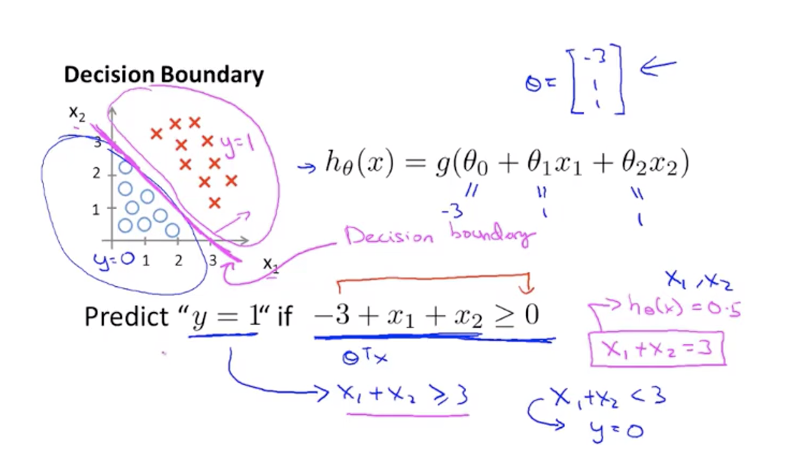 Decision Boundary
θ = [-3 1 1]
x₂
3
2
1
y=1
y=0 1 2 3 x₁
→ hθ(x) = g(θ₀ + θ₁x₁ + θ₂x₂)
-3 1 1
Decision boundary
Predict “y = 1“ if −3 + x₁ + x₂ ≥ 0
θᵀx
x₁, x₂
hθ(x) = 0.5
x₁ + x₂ = 3
x₁ + x₂ ≥ 3
x₁ + x₂ < 3
y = 0